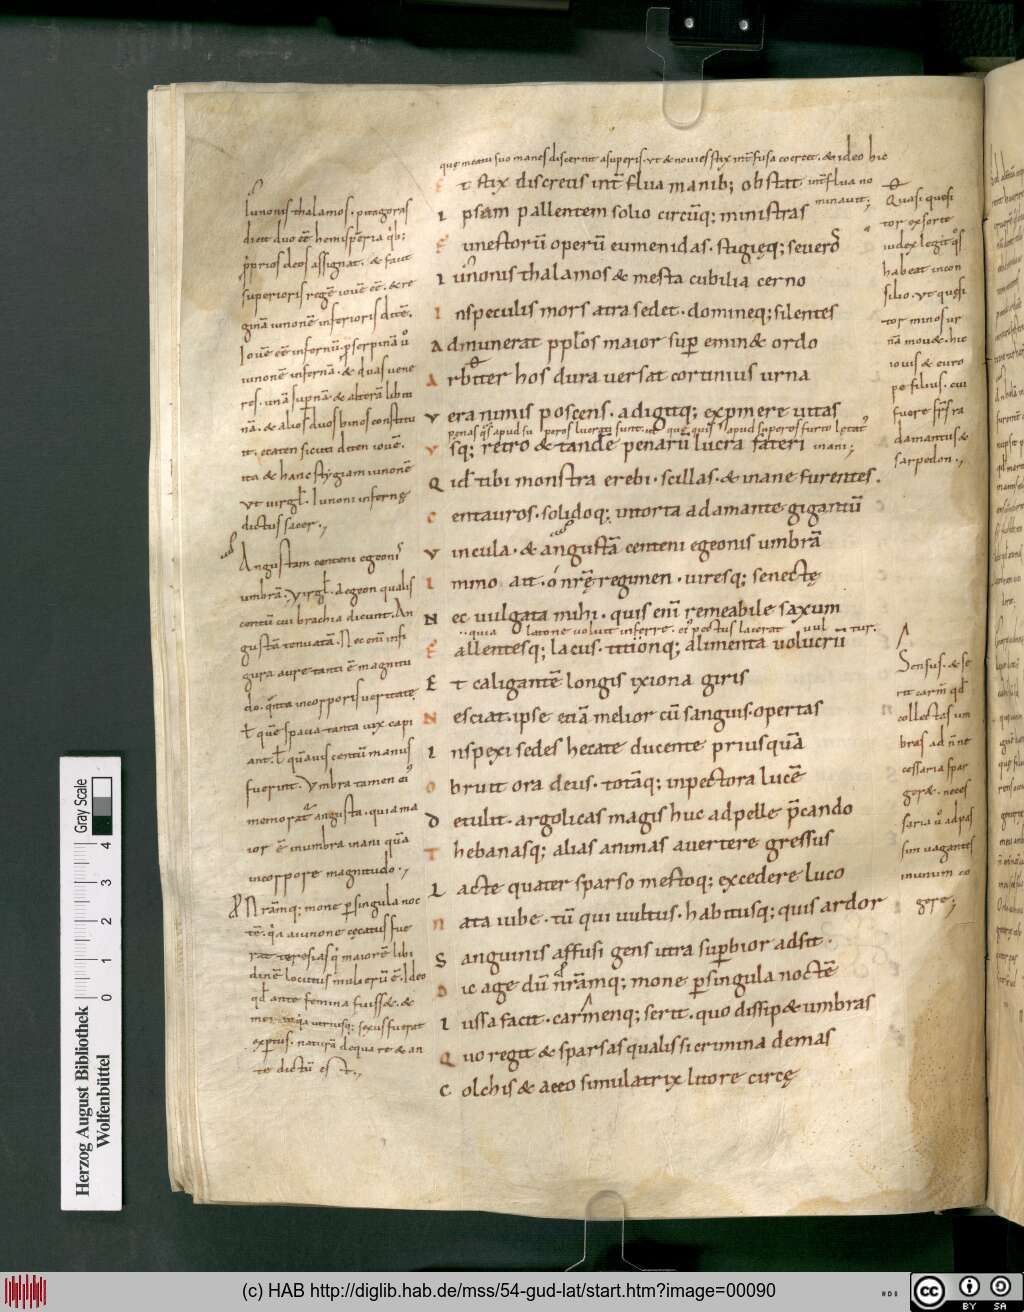 quę meatu suo manes discernit a superis. ut & nouies stix int̄fusa coercet. & ideo hic
int̄flua no
minauit;
E t stix discretis int̄flua manib; obstat
I psam pallentem solio circūq; ministras
F unestorū operū eumenidas. stigięq; seueros
I unonis thalamos & mesta cubilia cerno
I n speculis mors atra sedet. domineq; silentes
A dmunerat pplos maior sup eminet ordo
A rbiter hos dura uersat cortinius urna
V era nimis poscens. adigitq; expmere uitas
V sq; retro & tandē penarū lucra fateri
inani;
Q id tibi monstra erebi. scillas. & inane furentes.
C entauros. solidoq; intorta adamante gigantū
V incula. & angustā centeni egeonis umbrā
I mmo ait. o nrę regimen. uiresq; senectę
N ec uulgata mihi. quis enī remeabile saxum
F allentesq; lacus. titionq; alimenta uolucrū
E t caligantē longis ixiona giris
N esciat. ipse etiā melior cū sanguis. opertas
I nspexi sedes hecate ducente priusquā
O bruit ora deus. totāq; in pectora lucē
D etulit. argolicas magis huc adpelle p̄cando
T hebanasq; alias animas auertere gressus
L acte quater sparso mestoq; excedere luco
N ata iube. tū qui uultus. habitusq; quis ardor
S anguinis affusi gens utra supbior adsit.
D ic age dū nrāmq; mone psingula noctē
I ussa facit. carmenq; serit. quo dissip& umbras
Q uo regit & sparsas qualis si crimina demas
C olchis & aeeo simulatrix litore circę
Iunonis thalamos. pitagoras
dicit duo eē hemispēria
p̄prios deos assignat. & facit
superioris regē iouē eē. & re
ginā iunonē inferioris ditē.
Iouē eē infernū pserpinā ů
iunonē infernā. & duas uene
res. unā supnā & alterā libiti
nā. & alios duos binos constitu
it. ecaten sicuti diten iouē.
ita & hanc stygiam iunonē
ut uirgł. Iunoni infernę
dictus sacer.
Angustam centeni egeonis
umbrā. Virgł. aegeon qualis
centū cui brachia dicunt. An
gustā tenuatā. Nec enī infi
gura aure tanti ē magnitu
do. qnta in corporis ueritate
ł quē spacia tanta uix capi
ant. ł quāuis centū manus
fuerint. Vmbra tamen ei
memorat angusta. quia ma
ior ē in umbra inani quā
in corpore magnitudo.
Nrāmq; mone psingula noc
tē. qa a iunone cęcatus fue
rat teresias q maiorē libi
dinē locutus mulierū ē. Ideo
qd ante femina fuisset. &
qa utriusq; sexus fuerat
exptus. naturā de qua re & an
te dictū est.
Quasi quesi
tor ex sorte
iudex legit qs
habeat in con
silio. ut quesi
tor minos ur
nā mouet. hic
iouis & euro
pe filius. cui
fuere frs ra
damantus &
sarpedon.
Sensus. & se
rit carm qd
collectas um
bras ad nne
cessaria spar
geret. neces
saria ů ad pas
sim uagantes
in unum co
geret;
Gray Scale
0 1 2 3 4
Herzog August Bibliothek
Wolfenbüttel
(c) HAB http://diglib.hab.de/mss/54-gud-lat/start.htm?image=00090
HAB
cc BY SA